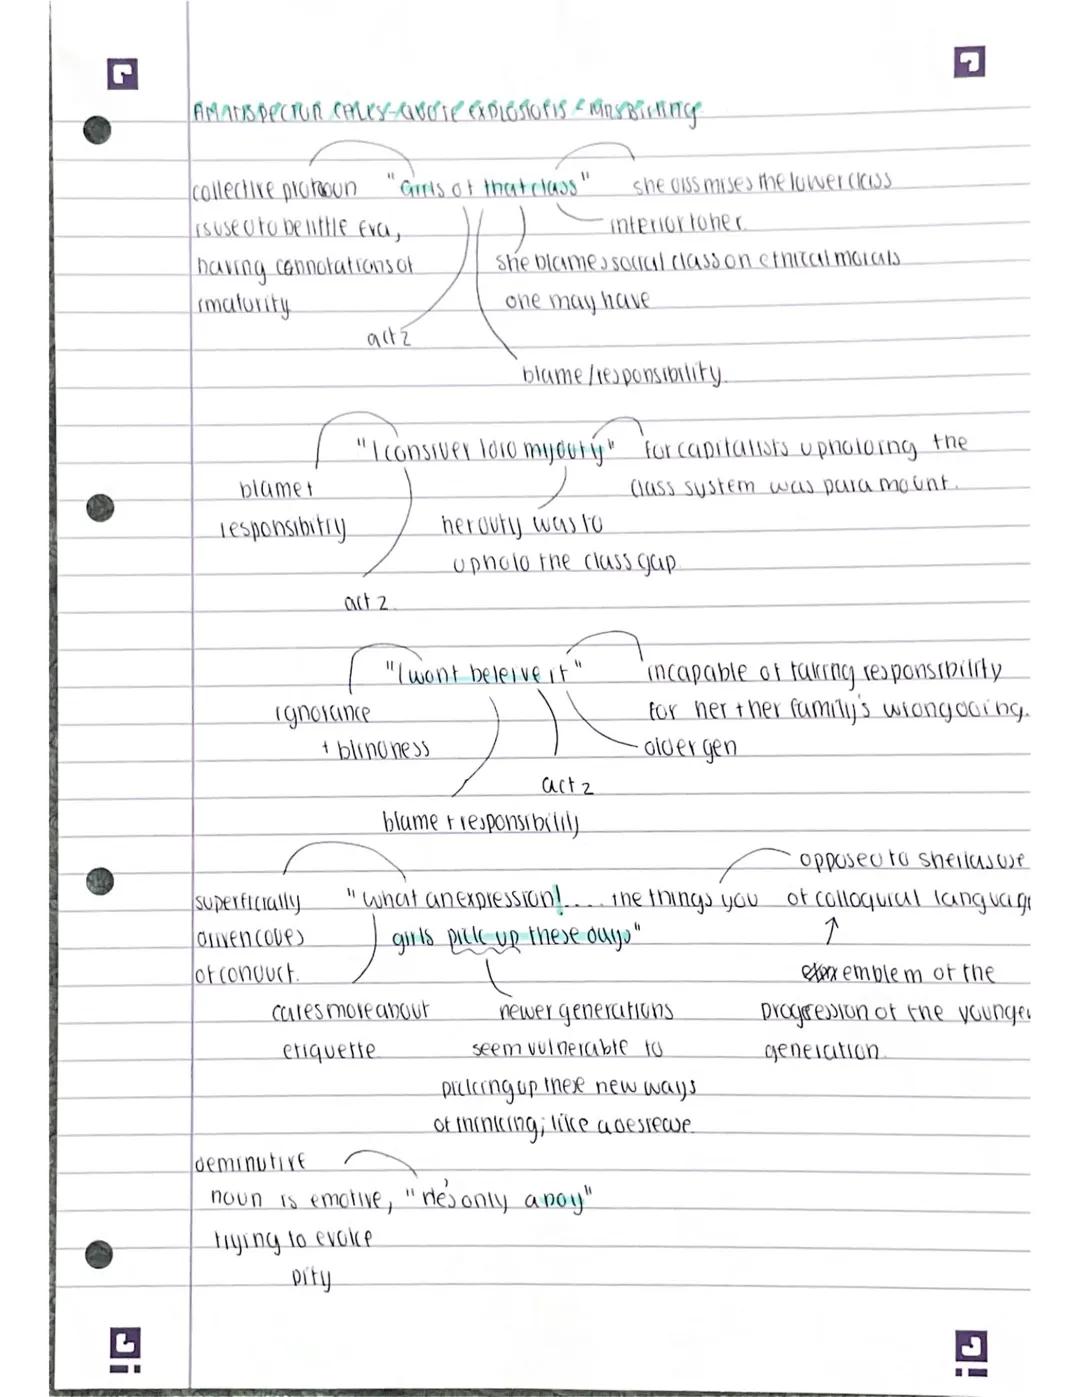 AN INSPECTOR CALLS-QUOTE EXPLOSIONS - MRS BIRLING
collective pronoun "Girls of that class" she dissmises the lower class
is used to belittle Eva, inferior to her.
having connotations of she blames social class on ethical morals
imaturity one may have
act 2
blame/responsibility.
"I consiver I did my duty" for capitalists upholding the
blame + class system was paramount.
responsibitry her duty was to
uphold the class gap
act 2.
"I wont beleive it" incapable of taking responsibility
ignorance for her + her family's wrongdoing.
+ blindness older gen
act 2
blame + responsibility
opposed to sheilas use
superficially "What an expression!.... the things you of colloquial language
driven codes girls pick up these days"
of conduct. emblem of the
cares more about newer generations progression of the younger
etiquette. seem vulnerable to generation.
picking up these new ways
of thinking; like a desease.
deminutive
noun is emotive, "He's only a boy"
trying to evoke
pity